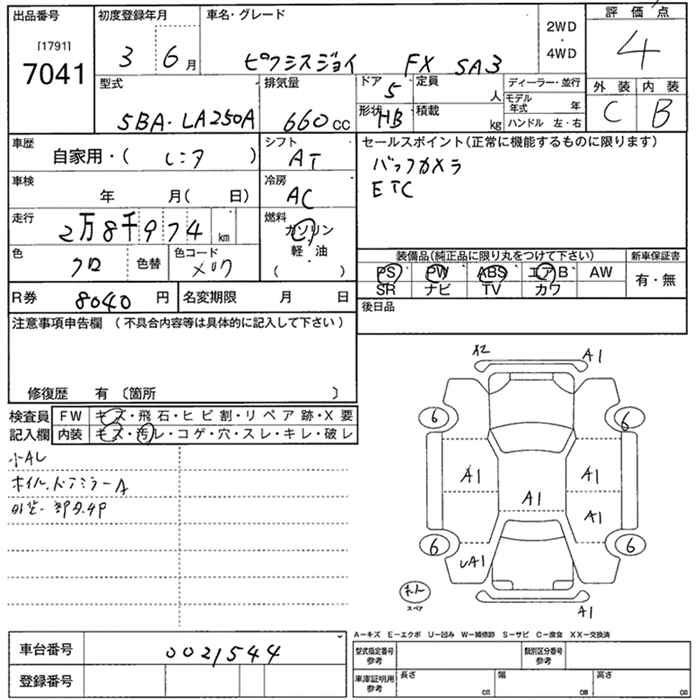 出品番号
[1791]
7041
初度登録年月
3 6月
車名・グレード
ピクシスジョイ FX SA3
2WD
4WD
評価点
4
外装 内装
C B
型式
5BA-LA250A
排気量
660cc
ドア 5
定員 人
形状 HB
積載 kg
ディーラー・並行
モデル年式 年
ハンドル 左・右
車歴
自家用・( )
シフト
AT
セールスポイント(正常に機能するものに限ります)
バックカメラ
ETC
車検
年 月( 日)
冷房
AC
走行
2万8千974 km
燃料
ガソリン
軽油
( )
色
クロ
色替
色コード
装備品(純正品に限り丸をつけて下さい)
PS PW ABS エアB AW
SR ナビ TV カワ
新車保証書
有・無
R券 8040 円
名変期限 月 日
後日品
注意事項申告欄 (不具合内容等は具体的に記入して下さい)
修復歴 有 〔箇所 〕
検査員記入欄
FW キズ・飛石・ヒビ割・リペア跡・X要
内装 キズ・汚レ・コゲ・穴・スレ・キレ・破レ
小AL
ホイル、ドアミラーA
X2 A1
6 6
A1 A1
A1 A1
6 6
UA1
スペア
A1
A−キズ E−エクボ U−凹み W−補修跡 S−サビ C−腐食 XX−交換済
車台番号 0021544
登録番号
型式指定番号 参考
類別区分番号 参考
車庫証明用 参考
長さ cm
幅 cm
高さ cm